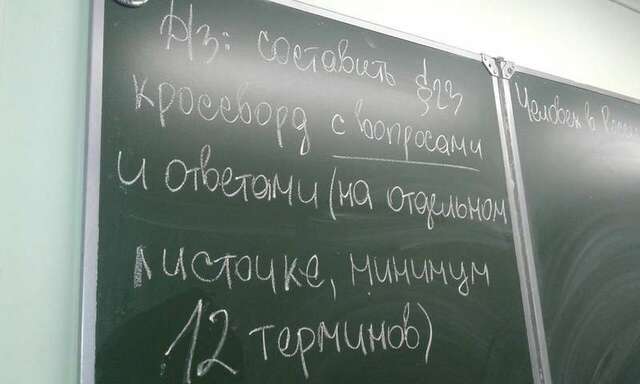 Д/з: составить §23
кроссворд с вопросами
и ответами (на отдельном
листочке, минимум
12 терминов)
Человек в